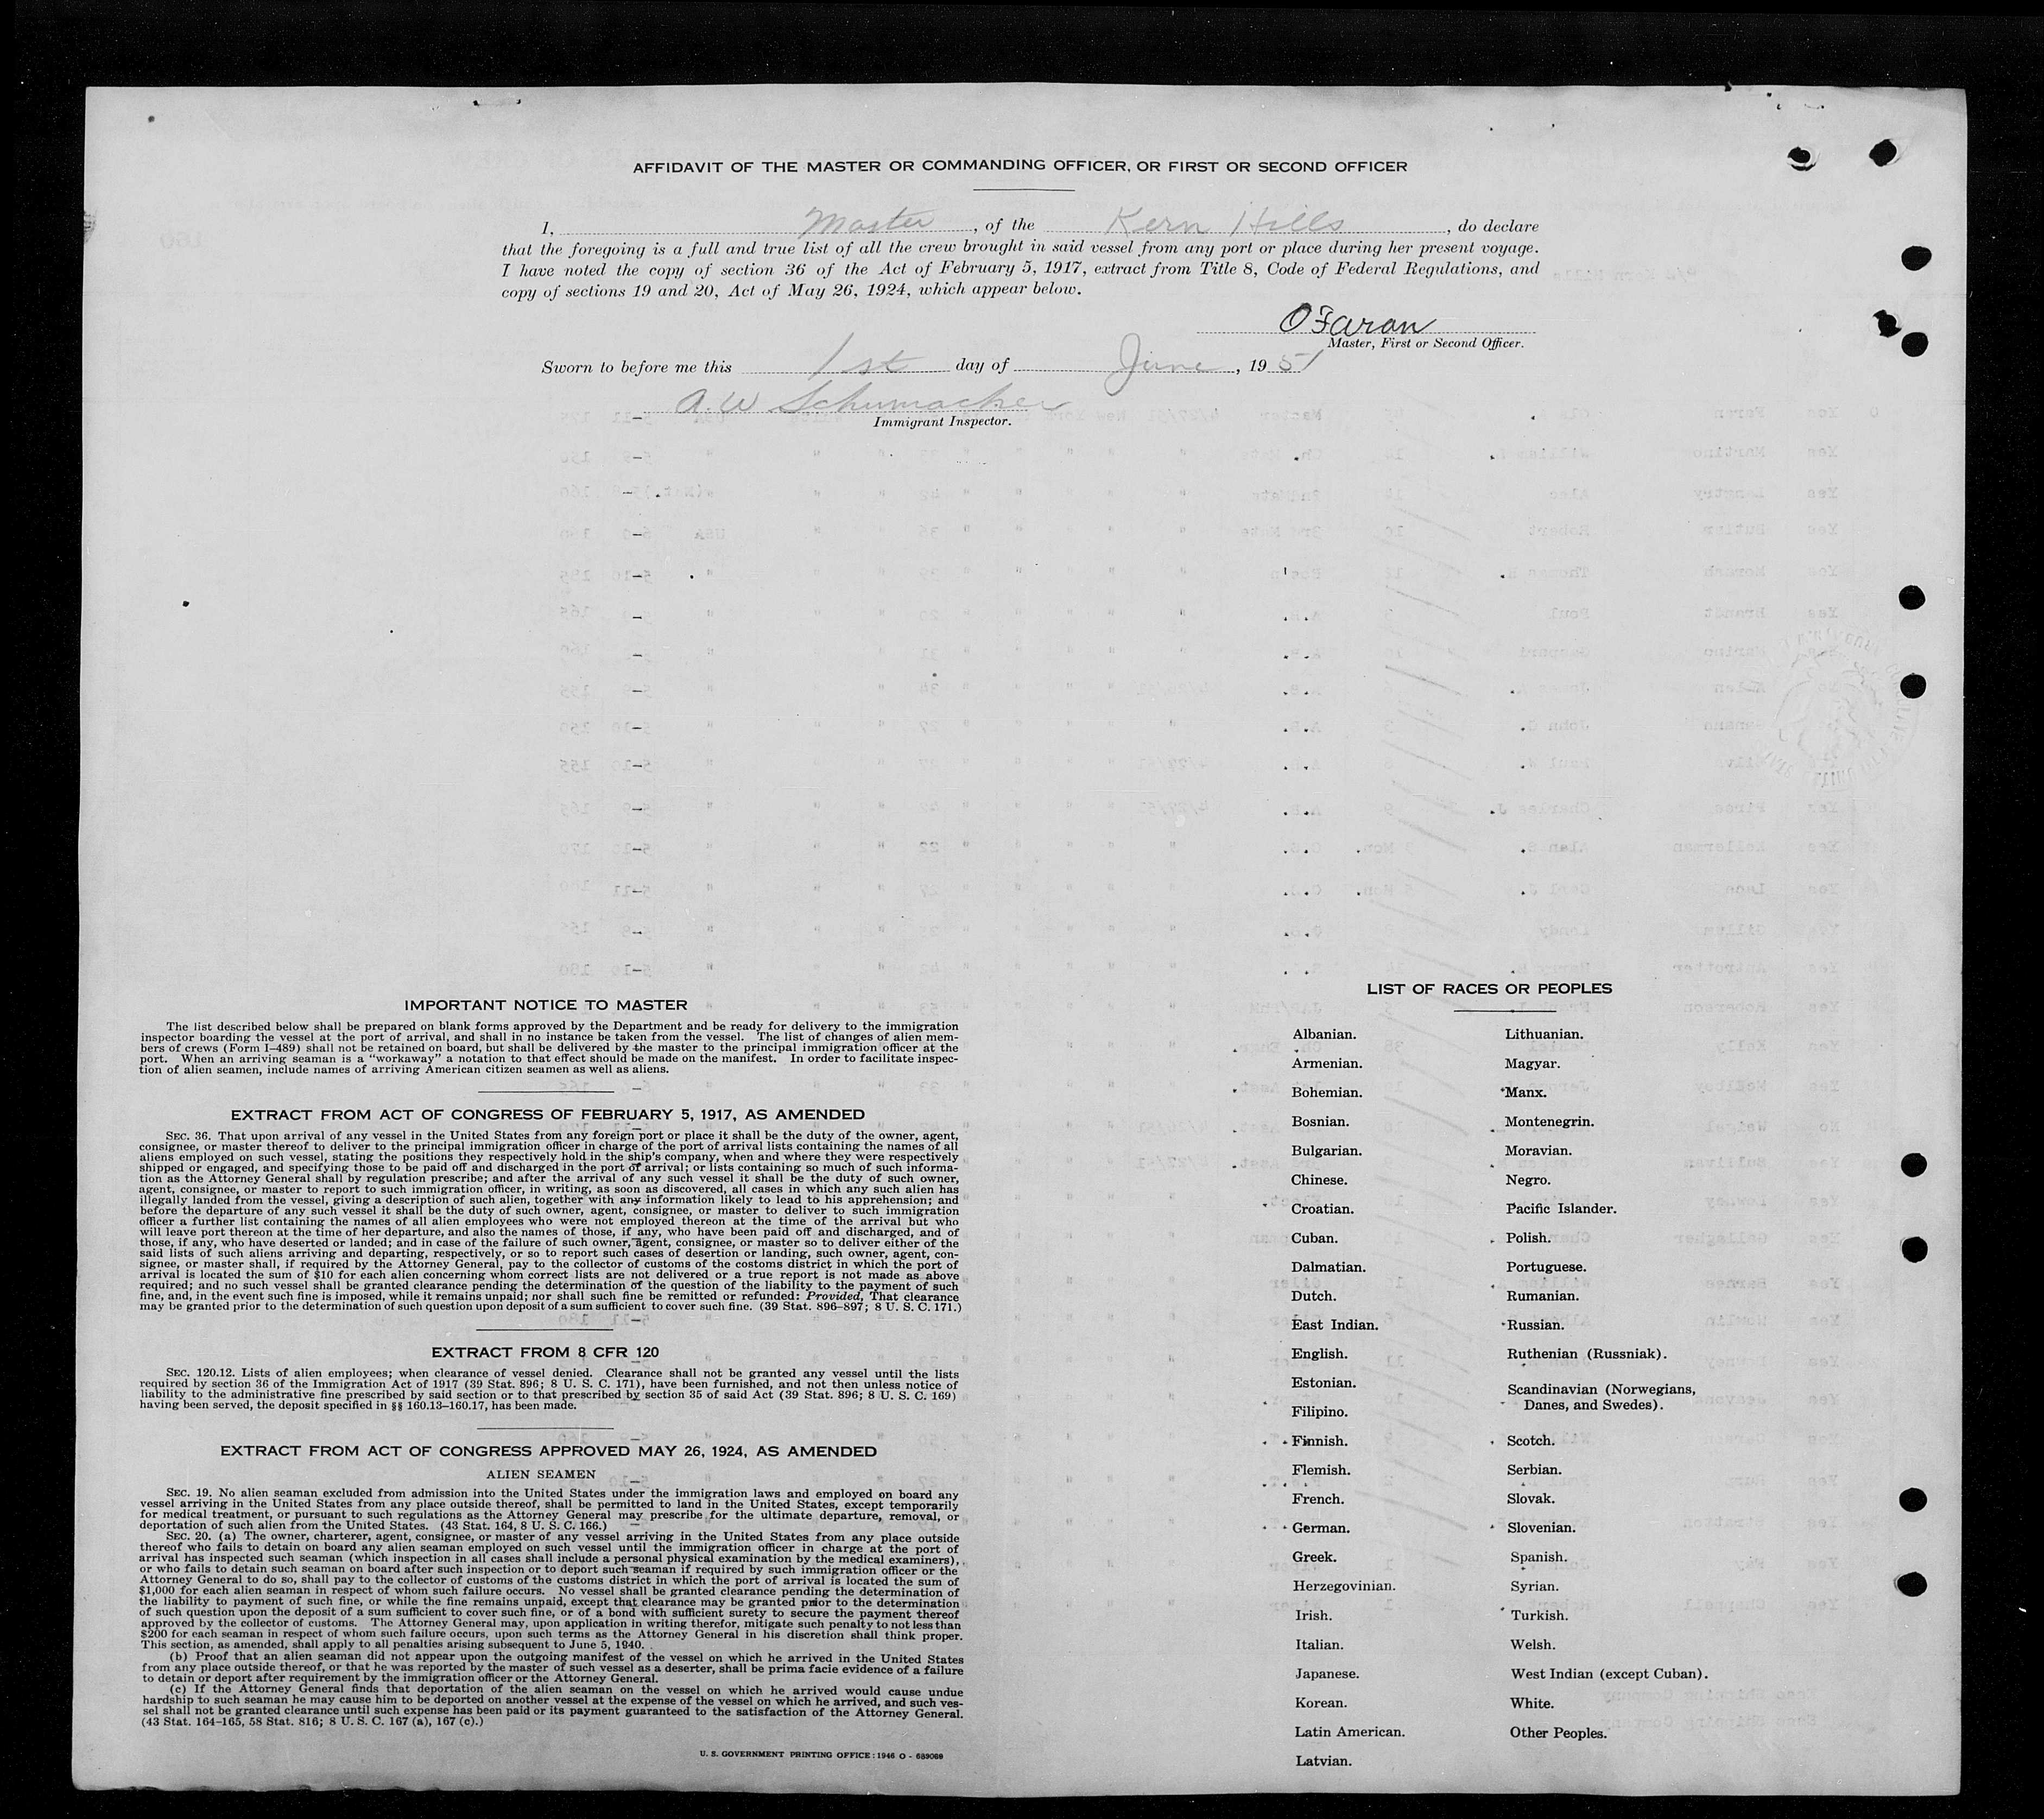 AFFIDAVIT OF THE MASTER OR COMMANDING OFFICER, OR FIRST OR SECOND OFFICER
I, Master, of the Kern Hills, do declare
that the foregoing is a full and true list of all the crew brought in said vessel from any port or place during her present voyage.
I have noted the copy of section 36 of the Act of February 5, 1917, extract from Title 8, Code of Federal Regulations, and
copy of sections 19 and 20, Act of May 26, 1924, which appear below.
O Faron
Master, First or Second Officer.
Sworn to before me this 1st day of June, 1951
A. W Schumacker
Immigrant Inspector.
IMPORTANT NOTICE TO MASTER
The list described below shall be prepared on blank forms approved by the Department and be ready for delivery to the immigration
inspector boarding the vessel at the port of arrival, and shall in no instance be taken from the vessel. The list of changes of alien mem-
bers of crews (Form I–489) shall not be retained on board, but shall be delivered by the master to the principal immigration officer at the
port. When an arriving seaman is a “workaway” a notation to that effect should be made on the manifest. In order to facilitate inspec-
tion of alien seamen, include names of arriving American citizen seamen as well as aliens.
EXTRACT FROM ACT OF CONGRESS OF FEBRUARY 5, 1917, AS AMENDED
SEC. 36. That upon arrival of any vessel in the United States from any foreign port or place it shall be the duty of the owner, agent,
consignee, or master thereof to deliver to the principal immigration officer in charge of the port of arrival lists containing the names of all
aliens employed on such vessel, stating the positions they respectively hold in the ship's company, when and where they were respectively
shipped or engaged, and specifying those to be paid off and discharged in the port of arrival; or lists containing so much of such informa-
tion as the Attorney General shall by regulation prescribe; and after the arrival of any such vessel it shall be the duty of such owner,
agent, consignee, or master to report to such immigration officer, in writing, as soon as discovered, all cases in which any such alien has
illegally landed from the vessel, giving a description of such alien, together with any information likely to lead to his apprehension; and
before the departure of any such vessel it shall be the duty of such owner, agent, consignee, or master to deliver to such immigration
officer a further list containing the names of all alien employees who were not employed thereon at the time of the arrival but who
will leave port thereon at the time of her departure, and also the names of those, if any, who have been paid off and discharged, and of
those, if any, who have deserted or landed; and in case of the failure of such owner, agent, consignee, or master so to deliver either of the
said lists of such aliens arriving and departing, respectively, or so to report such cases of desertion or landing, such owner, agent, con-
signee, or master shall, if required by the Attorney General, pay to the collector of customs of the costoms district in which the port of
arrival is located the sum of $10 for each alien concerning whom correct lists are not delivered or a true report is not made as above
required; and no such vessel shall be granted clearance pending the determination of the question of the liability to the payment of such
fine, and, in the event such fine is imposed, while it remains unpaid; nor shall such fine be remitted or refunded: Provided, That clearance
may be granted prior to the determination of such question upon deposit of a sum sufficient to cover such fine. (39 Stat. 896–897; 8 U. S. C. 171.)
EXTRACT FROM 8 CFR 120
SEC. 120.12. Lists of alien employees; when clearance of vessel denied. Clearance shall not be granted any vessel until the lists
required by section 36 of the Immigration Act of 1917 (39 Stat. 896; 8 U. S. C. 171), have been furnished, and not then unless notice of
liability to the administrative fine prescribed by said section or to that prescribed by section 35 of said Act (39 Stat. 896; 8 U. S. C. 169)
having been served, the deposit specified in §§ 160.13–160.17, has been made.
EXTRACT FROM ACT OF CONGRESS APPROVED MAY 26, 1924, AS AMENDED
ALIEN SEAMEN
SEC. 19. No alien seaman excluded from admission into the United States under the immigration laws and employed on board any
vessel arriving in the United States from any place outside thereof, shall be permitted to land in the United States, except temporarily
for medical treatment, or pursuant to such regulations as the Attorney General may prescribe for the ultimate departure, removal, or
deportation of such alien from the United States. (43 Stat. 164, 8 U. S. C. 166.)
SEC. 20. (a) The owner, charterer, agent, consignee, or master of any vessel arriving in the United States from any place outside
thereof who fails to detain on board any alien seaman employed on such vessel until the immigration officer in charge at the port of
arrival has inspected such seaman (which inspection in all cases shall include a personal physical examination by the medical examiners),
or who fails to detain such seaman on board after such inspection or to deport such seaman if required by such immigration officer or the
Attorney General to do so, shall pay to the collector of customs of the customs district in which the port of arrival is located the sum of
$1,000 for each alien seaman in respect of whom such failure occurs. No vessel shall be granted clearance pending the determination of
the liability to payment of such fine, or while the fine remains unpaid, except that clearance may be granted prior to the determination
of such question upon the deposit of a sum sufficient to cover such fine, or of a bond with sufficient surety to secure the payment thereof
approved by the collector of customs. The Attorney General may, upon application in writing therefor, mitigate such penalty to not less than
$200 for each seaman in respect of whom such failure occurs, upon such terms as the Attorney General in his discretion shall think proper.
This section, as amended, shall apply to all penalties arising subsequent to June 5, 1940.
(b) Proof that an alien seaman did not appear upon the outgoing manifest of the vessel on which he arrived in the United States
from any place outside thereof, or that he was reported by the master of such vessel as a deserter, shall be prima facie evidence of a failure
to detain or deport after requirement by the immigration officer or the Attorney General.
(c) If the Attorney General finds that deportation of the alien seaman on the vessel on which he arrived would cause undue
hardship to such seaman he may cause him to be deported on another vessel at the expense of the vessel on which he arrived, and such ves-
sel shall not be granted clearance until such expense has been paid or its payment guaranteed to the satisfaction of the Attorney General.
(43 Stat. 164–165, 58 Stat. 816; 8 U. S. C. 167 (a), 167 (c).)
U. S. GOVERNMENT PRINTING OFFICE : 1946 O - 689069
LIST OF RACES OR PEOPLES
Albanian.
Armenian.
Bohemian.
Bosnian.
Bulgarian.
Chinese.
Croatian.
Cuban.
Dalmatian.
Dutch.
East Indian.
English.
Estonian.
Filipino.
Finnish.
Flemish.
French.
German.
Greek.
Herzegovinian.
Irish.
Italian.
Japanese.
Korean.
Latin American.
Latvian.
Lithuanian.
Magyar.
Manx.
Montenegrin.
Moravian.
Negro.
Pacific Islander.
Polish.
Portuguese.
Rumanian.
Russian.
Ruthenian (Russniak).
Scandinavian (Norwegians,
Danes, and Swedes).
Scotch.
Serbian.
Slovak.
Slovenian.
Spanish.
Syrian.
Turkish.
Welsh.
West Indian (except Cuban).
White.
Other Peoples.